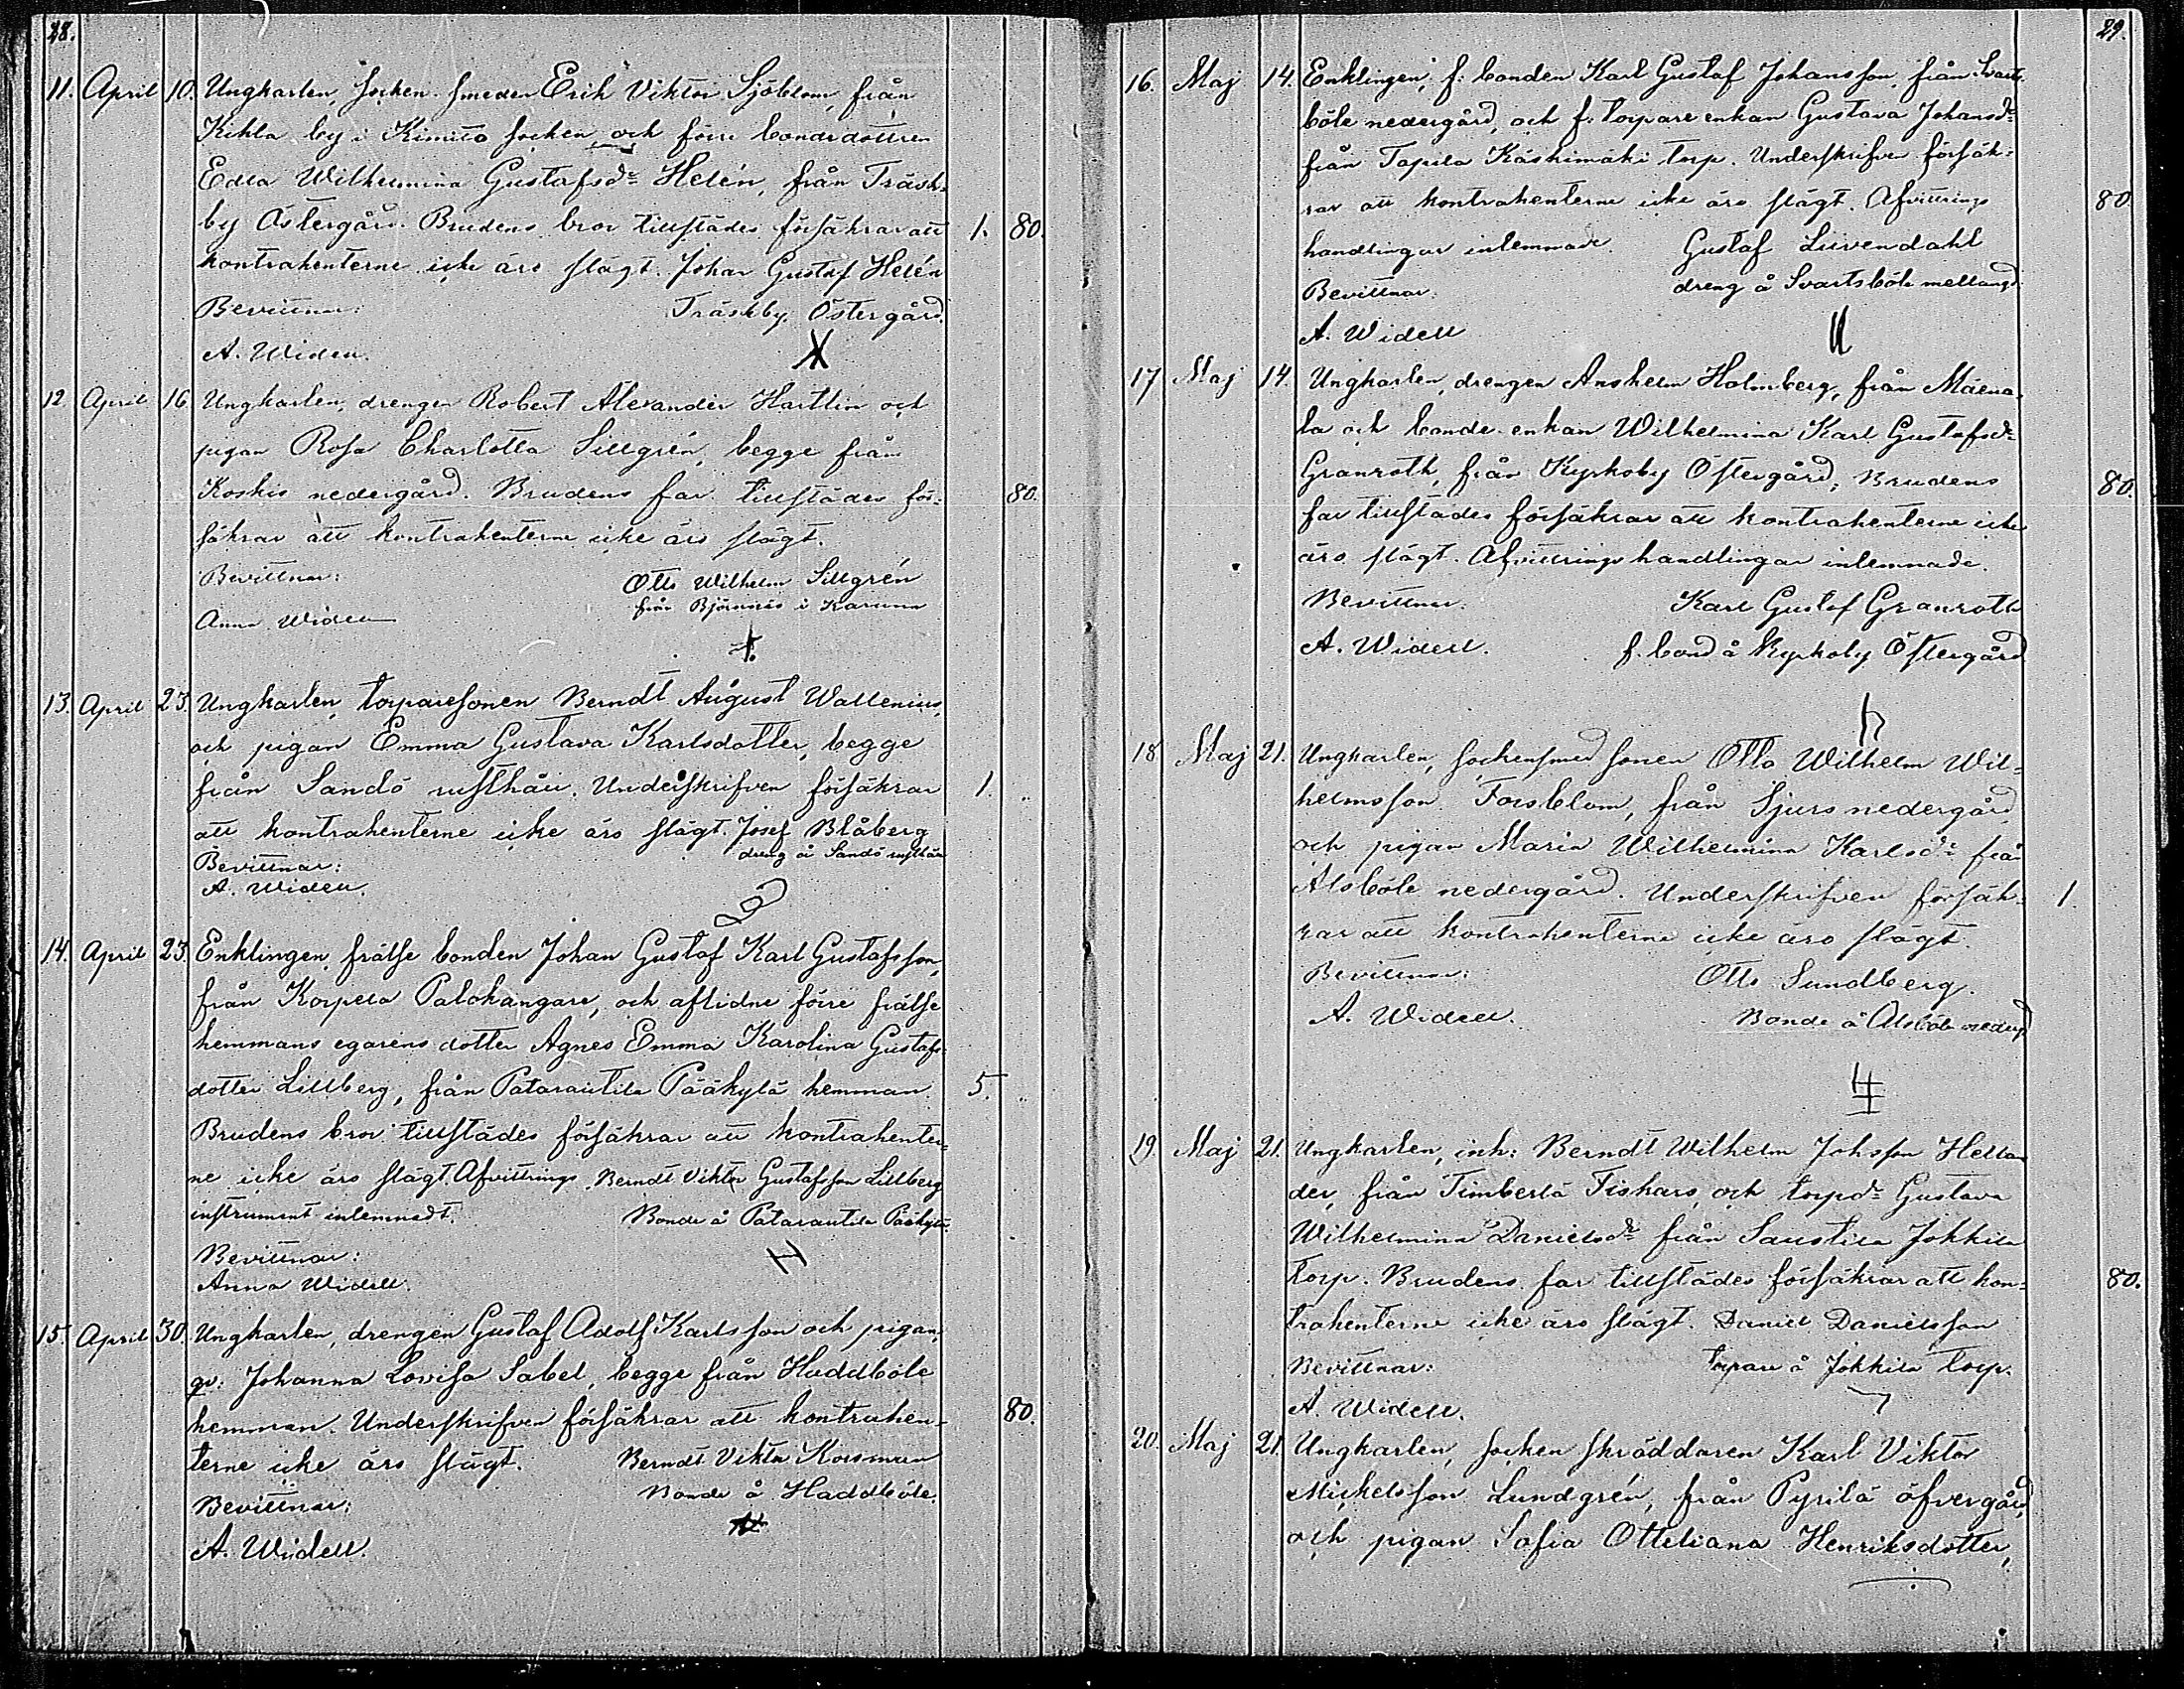 28.
11. April 10. Ungkarlen, socken smeden Erik Viktor Sjöblom, från
Kihla by i Kimito socken och förre bondedottren
Edla Wilhelmina Gustafsdr Helén, från Träsk-
by Östergård. Brudens bror tillstädes försäkrar att 1. 80.
kontrahenterne icke äro slägt. Johan Gustaf Helén
Bevittnar: Träskby Östergård.
A. Widell.
12. April 16 Ungkarlen, drengen Robert Alexander Hartlin och
pigan Rosa Charlotta Sillgrén, begge från
Koskis nedergård. Brudens far tillstädes för- 80.
säkrar att kontrahenterne icke äro slägt.
Bevittnar: Otto Wilhelm Sillgrén
från Björnnäs i Karuna
Anna Widell
13. April 23. Ungkarlen, torparesonen Berndt August Wallenius,
och pigan Emma Gustava Karlsdotter, begge
från Sandö rusthåll. Underskrifven försäkrar 1.
att kontrahenterne icke äro slägt. Josef Blåberg
dreng å Sandö rusthåll
Bevittnar:
A. Widell.
14. April 23. Enklingen, frälse bonden Johan Gustaf Karl Gustafsson,
från Korpela Palokangare, och aflidne förre frälse
hemmans egarens dotter Agnes Emma Karolina Gustafs-
dotter Lillberg, från Patarautila Pääkylä hemman. 5.
Brudens bror tillstädes försäkrar att kontrahenter-
ne icke äro slägt. Afvittrings Berndt Viktor Gustafsson Lillberg
instrument inlemnadt. Bonde å Patarautila Pääkylä.
Bevittnar:
Anna Widell.
15. April 30. Ungkarlen, drengen Gustaf Adolf Karlsson och pigan,
qv: Johanna Lovisa Sabel, begge från Haddböle
hemman. Underskrifven försäkrar att kontrahen- 80.
terne icke äro slägt. Berndt Viktor Korsman
Bonde å Haddböle.
Bevittnar:
A. Widell.
29.
16. Maj 14. Enklingen, f: bonden Karl Gustaf Johansson, från Svarts-
böle nedergård, och f: torpare enkan Gustava Johansdr
från Tapila Käskimäki torp. Underskrifven försäk-
rar att kontrahenterne icke äro slägt. Afvittrings 80.
handlingar inlemnade. Gustaf Liivendahl
Bevittnar: dreng å Svartsböle mellangd.
A. Widell
17 Maj 14. Ungkarlen, drengen Anshelm Holmberg, från Mäena-
la och bonde enkan Wilhelmina Karl Gustafsdr
Granroth, från Kyrkoby Östergård; Brudens 80.
far tillstädes försäkrar att kontrahenterne icke
äro slägt. Afvittrings handlingar inlemnade.
Bevittnar: Karl Gustaf Granroth
A. Widell. f. bond å Kyrkoby Östergård
18 Maj 21. Ungkarlen, sockensmed sonen Otto Wilhelm Wil-
helmsson Forsblom, från Sjurs nedergård
och pigan Maria Wilhelmina Karlsdr från
Alsböle nedergård. Underskrifven försäk- 1.
rar att kontrahenterne icke äro slägt.
Bevittnar: Otto Sundberg.
A. Widell. Bonde å Alsböle nedergd
19. Maj 21. Ungkarlen, inh: Berndt Wilhelm Johsson Hellan-
der, från Timberlä Fiskars, och torpdr Gustava
Wilhelmina Danielsdr från Saustila Jokkila
torp. Brudens far tillstädes försäkrar att kon- 80.
trahenterne icke äro slägt. Daniel Danielsson
Bevittnar: Torpare å Jokkila torp.
A. Widell.
20. Maj 21. Ungkarlen, socken skräddaren Karl Viktor
Mickelsson Lundgrén, från Pyrilä öfvergård,
och pigan Sofia Otteliana Henriksdotter,